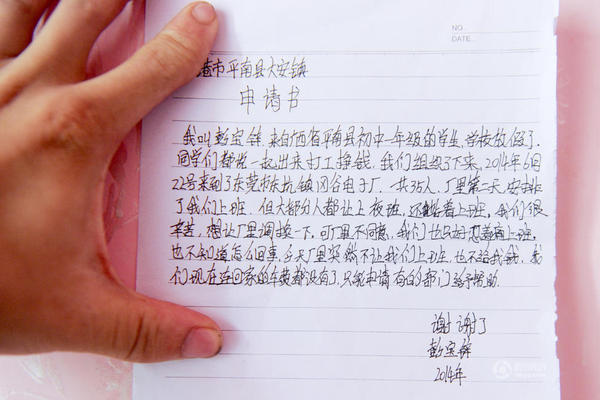 NO.
DATE.
港市平南县大安镇
申请书
我叫彭宝锋,来自广西省平南县初中一年级的学生,学校放假了.
同学们都说一起出来打工挣钱.我们组织了下来,2014年6月
22号来到了东莞 镇冈谷电子厂.一共35人,厂里第二天安排
了我们上班.但大部分人都让上夜班,还 着上班,我们很
辛苦.想让厂里调换一下,可厂里不同意,我们也只好忍着病上班,
也不知道怎么回事,今天厂里突然不让我们上班,也不给我钱,我
们现在连回家的车费都没有了,只能申请有的部门给予帮助.
谢谢了
彭宝锋
2014年